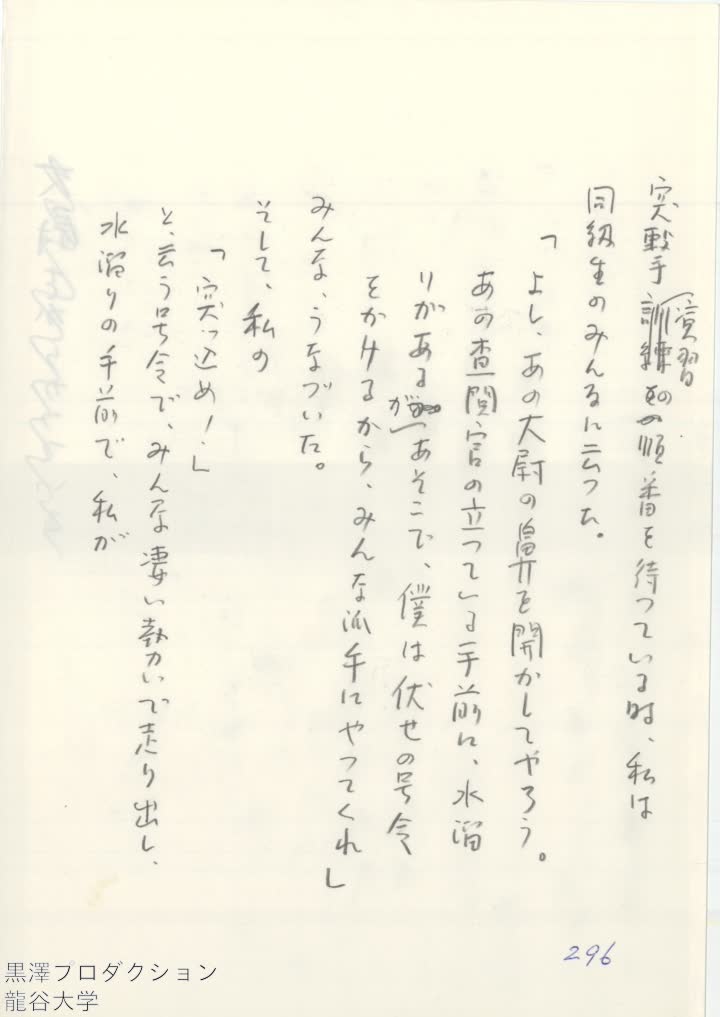 突撃手演習の順番を待っている時、私は
同級生のみんなに云った。
「よし、あの大尉の鼻を開かしてやろう。
あの査閲官の立っている手前に、水溜
りがあるが、あそこで、僕は伏せの号令
をかけるから、みんな派手にやってくれ」
みんな、うなづいた。
そして、私の
「突っ込め！」
と、云う号令で、みんな凄い勢いで走り出し、
水溜りの手前で、私が
296
黒澤プロダクション
龍谷大学